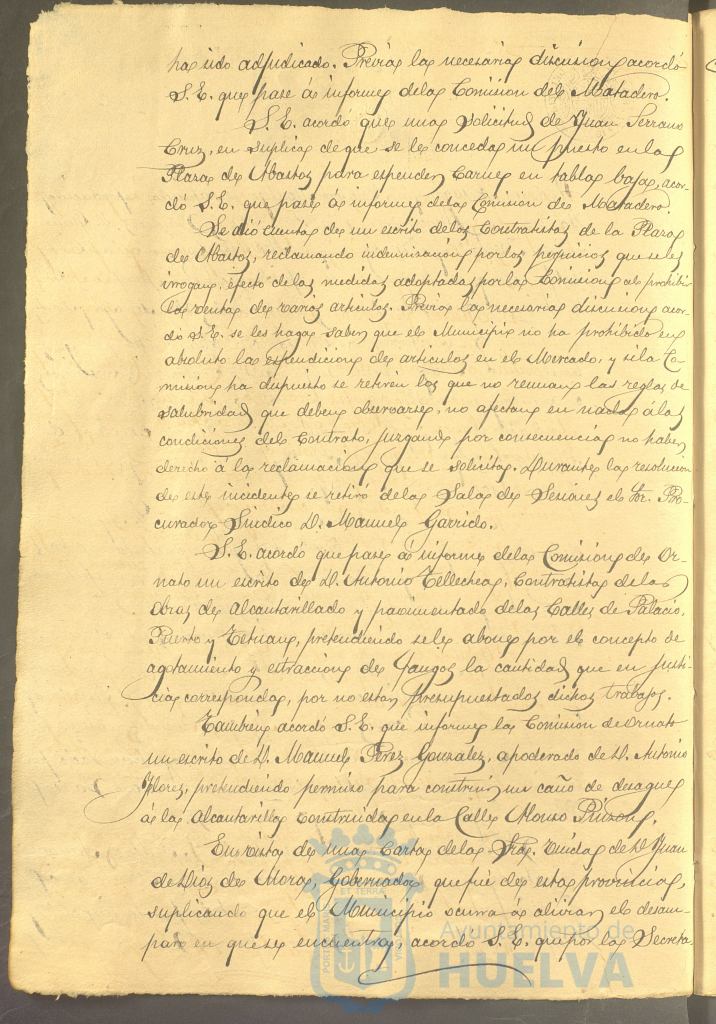 ha sido adjudicado. Previa la necesaria discusion acordó
S. E. que pase á informe de la Comision del Matadero.
S. E. acordó que una solicitud de Juan Serrano
Cruz, en suplica de que se le conceda un puesto en la
Plaza de Abastos para espender Carnes en tabla baja, acor-
dó S. E. que pase á informe de la Comision de Matadero.
Se dió cuenta de un escrito de los Contratistas de la Plaza
de Abastos, reclamando indemnizacion por los perjuicios que se les
irrogan, efecto de las medidas adoptadas por la Comision al prohibir
la venta de varios articulos. Previa la necesaria discusion acor-
dó S. E. se les haga saber que el Municipio no ha prohibido en
absoluto la espendicion de articulos en el Mercado, y si la Co-
mision ha dispuesto se retiren los que no reunan las reglas de
salubridad que deben observarse, no afectan en nada á las
condiciones del Contrato, juzgando por consecuencia no haber
derecho á la reclamacion que se solicita. Durante la resolucion
de este incidente se retiró de la Sala de Sesiones el Sr. Pro-
curador Sindico D. Manuel Garrido.
S. E. acordó que pase á informe de la Comision de Or-
nato un escrito de D. Antonio Tellechea, Contratista de las
obras de alcantarillado y pavimentado de las Calles de Palacio,
Puerto y Tetuan, pretendiendo se le abone por el concepto de
agotamiento y estraccion de fangos la cantidad que en justi-
cia corresponda, por no estar presupuestados dichos trabajos.
Tambien acordó S. E. que informe la Comision de Ornato
un escrito de D. Manuel Perez Gonzalez, apoderado de D. Antonio
Flores, pretendiendo permiso para construir un caño de desague
á la Alcantarilla construida en la Calle Alonso Pinzon.
En vista de una Carta de la Sra. Viuda de D. Juan
de Dios de Mora, Gobernador que fué de esta provincia,
suplicando que el Municipio ocurra á aliviar el desam-
paro en que se encuentra, acordó S. E. que por la Secreta-
Ayuntamiento de
HUELVA